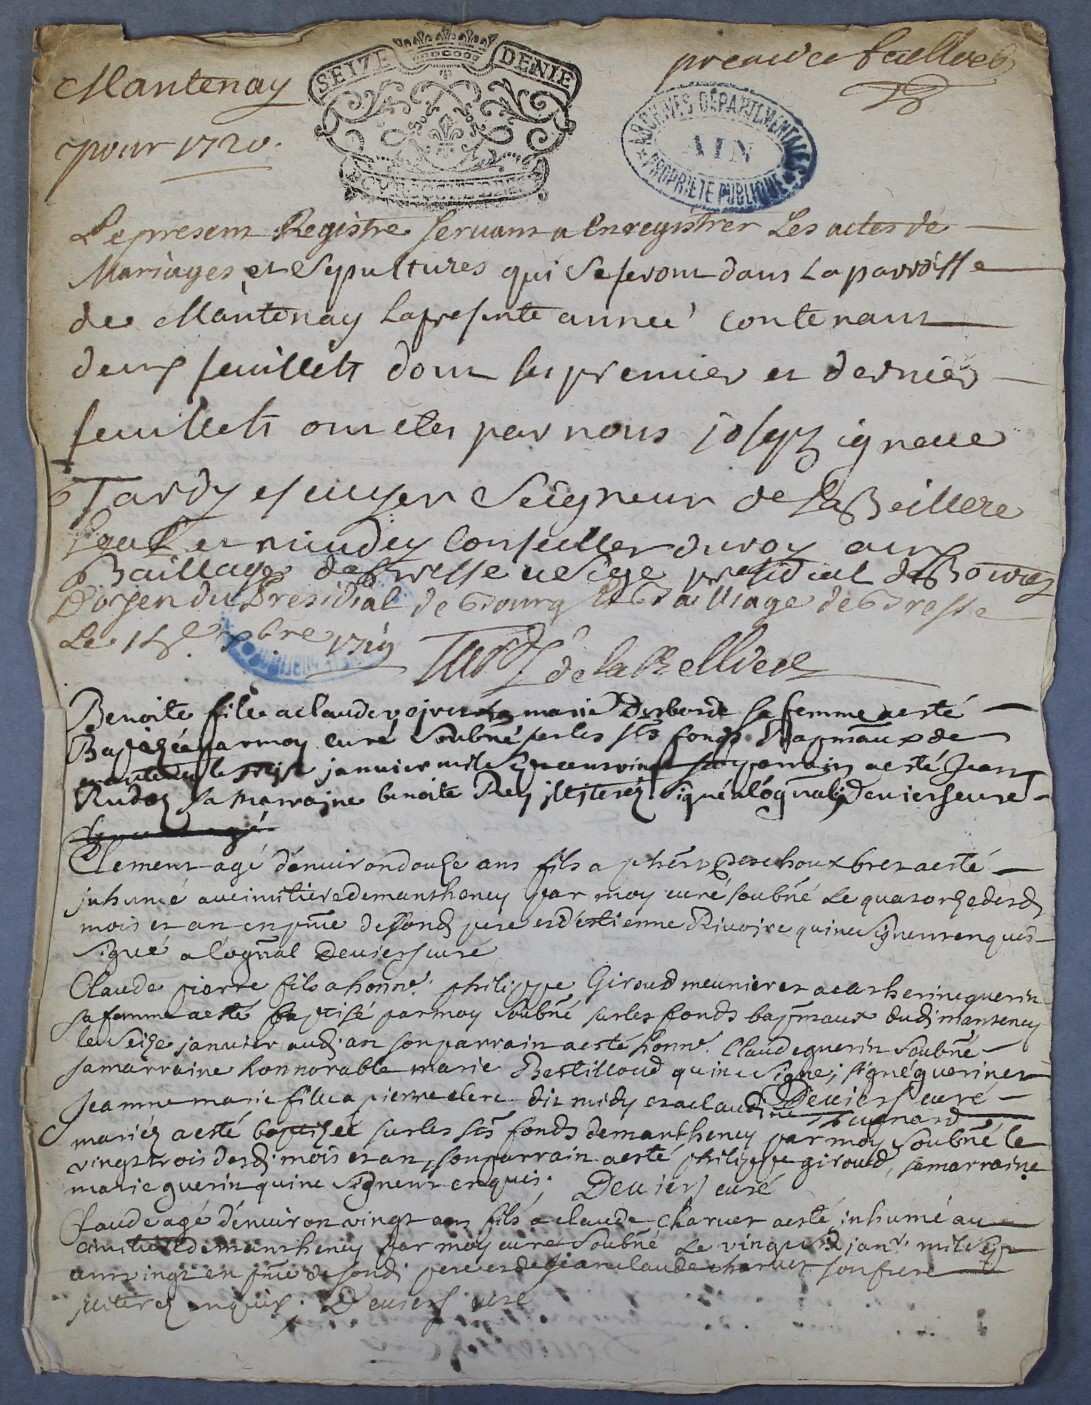 Mantenay
pour 1720.
SEIZE DENIE
premier feuillet
ARCHIVES DÉPARTEMENTALES
AIN
PROPRIÉTÉ PUBLIQUE
Le present Registre servant a Enregistrer Les actes de
Mariages et Sepultures qui se feront dans La parroisse
de Mantenay La presente année contenant
deux feuillets dont les premier et dernier
feuillets ont etes par nous joseph ignace
Tardy escuyer Seigneur de la Beillere
Conseiller du roy aux
Baillage de Bresse et Siege presidial de Bourg
du Presidial de Bourg et Bailliage de Bresse
Le 15e. xbre 1719 Tardy de la Bellvere
Benoite fille a claude et a marie Desborde sa femme a esté
Baptisée par moy curé soubné sur les sts fonds Baptismaux de
le janvier mil sept cens vingt son parrain a esté Jean
sa marraine benoite Rey signé a l'ognal Deviers curé
Clement agé d'environ douze ans fils a a esté
inhumé au cimitiere de mantheney par moy curé soubné Le quatorze desd
mois et an en pnce de sond pere et d'estienne Rivoire qui ne signent enquis
signé a l'ognal Deviers curé
Claude pierre fils a honné. philippe Giroud meunier et a catherine guerin
sa femme a esté baptisé par moy soubné sur les fonds bapmaux dud mantheney
le seize janvier aud an son parrain a esté honné. Claude guerin soubné
sa marraine honnorable marie Bestilloud qui ne signe, signé guerin et
Deviers curé
Jeanne marie fille a pierre clerc dit midy et a claudine Thugnard
mariez a esté baptizée sur les sts fonds de mantheney par moy soubné le
vingt trois desd mois et an, son parrain a esté philippe giroud, sa marraine
marie guerin qui ne signent enquis. Deviers curé
Claude agé d'environ vingt ans fils a claude Charvet a esté inhumé au
cimitiere de mantheney par moy curé soubné Le vingt janr. mil sept
cens vingt en pnce de sond pere et de jean claude charvet son frere
enquis. Deviers curé